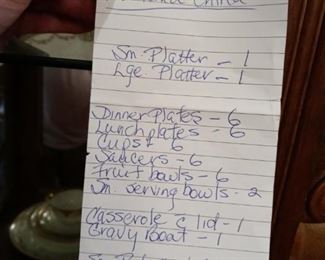 China
Sm. Platter - 1
Lge. Platter - 1
Dinner plates - 6
Lunch plates - 6
Cups - 6
Saucers - 6
Fruit bowls - 6
Sm. serving bowls - 2
Casserole c lid - 1
Gravy Boat - 1